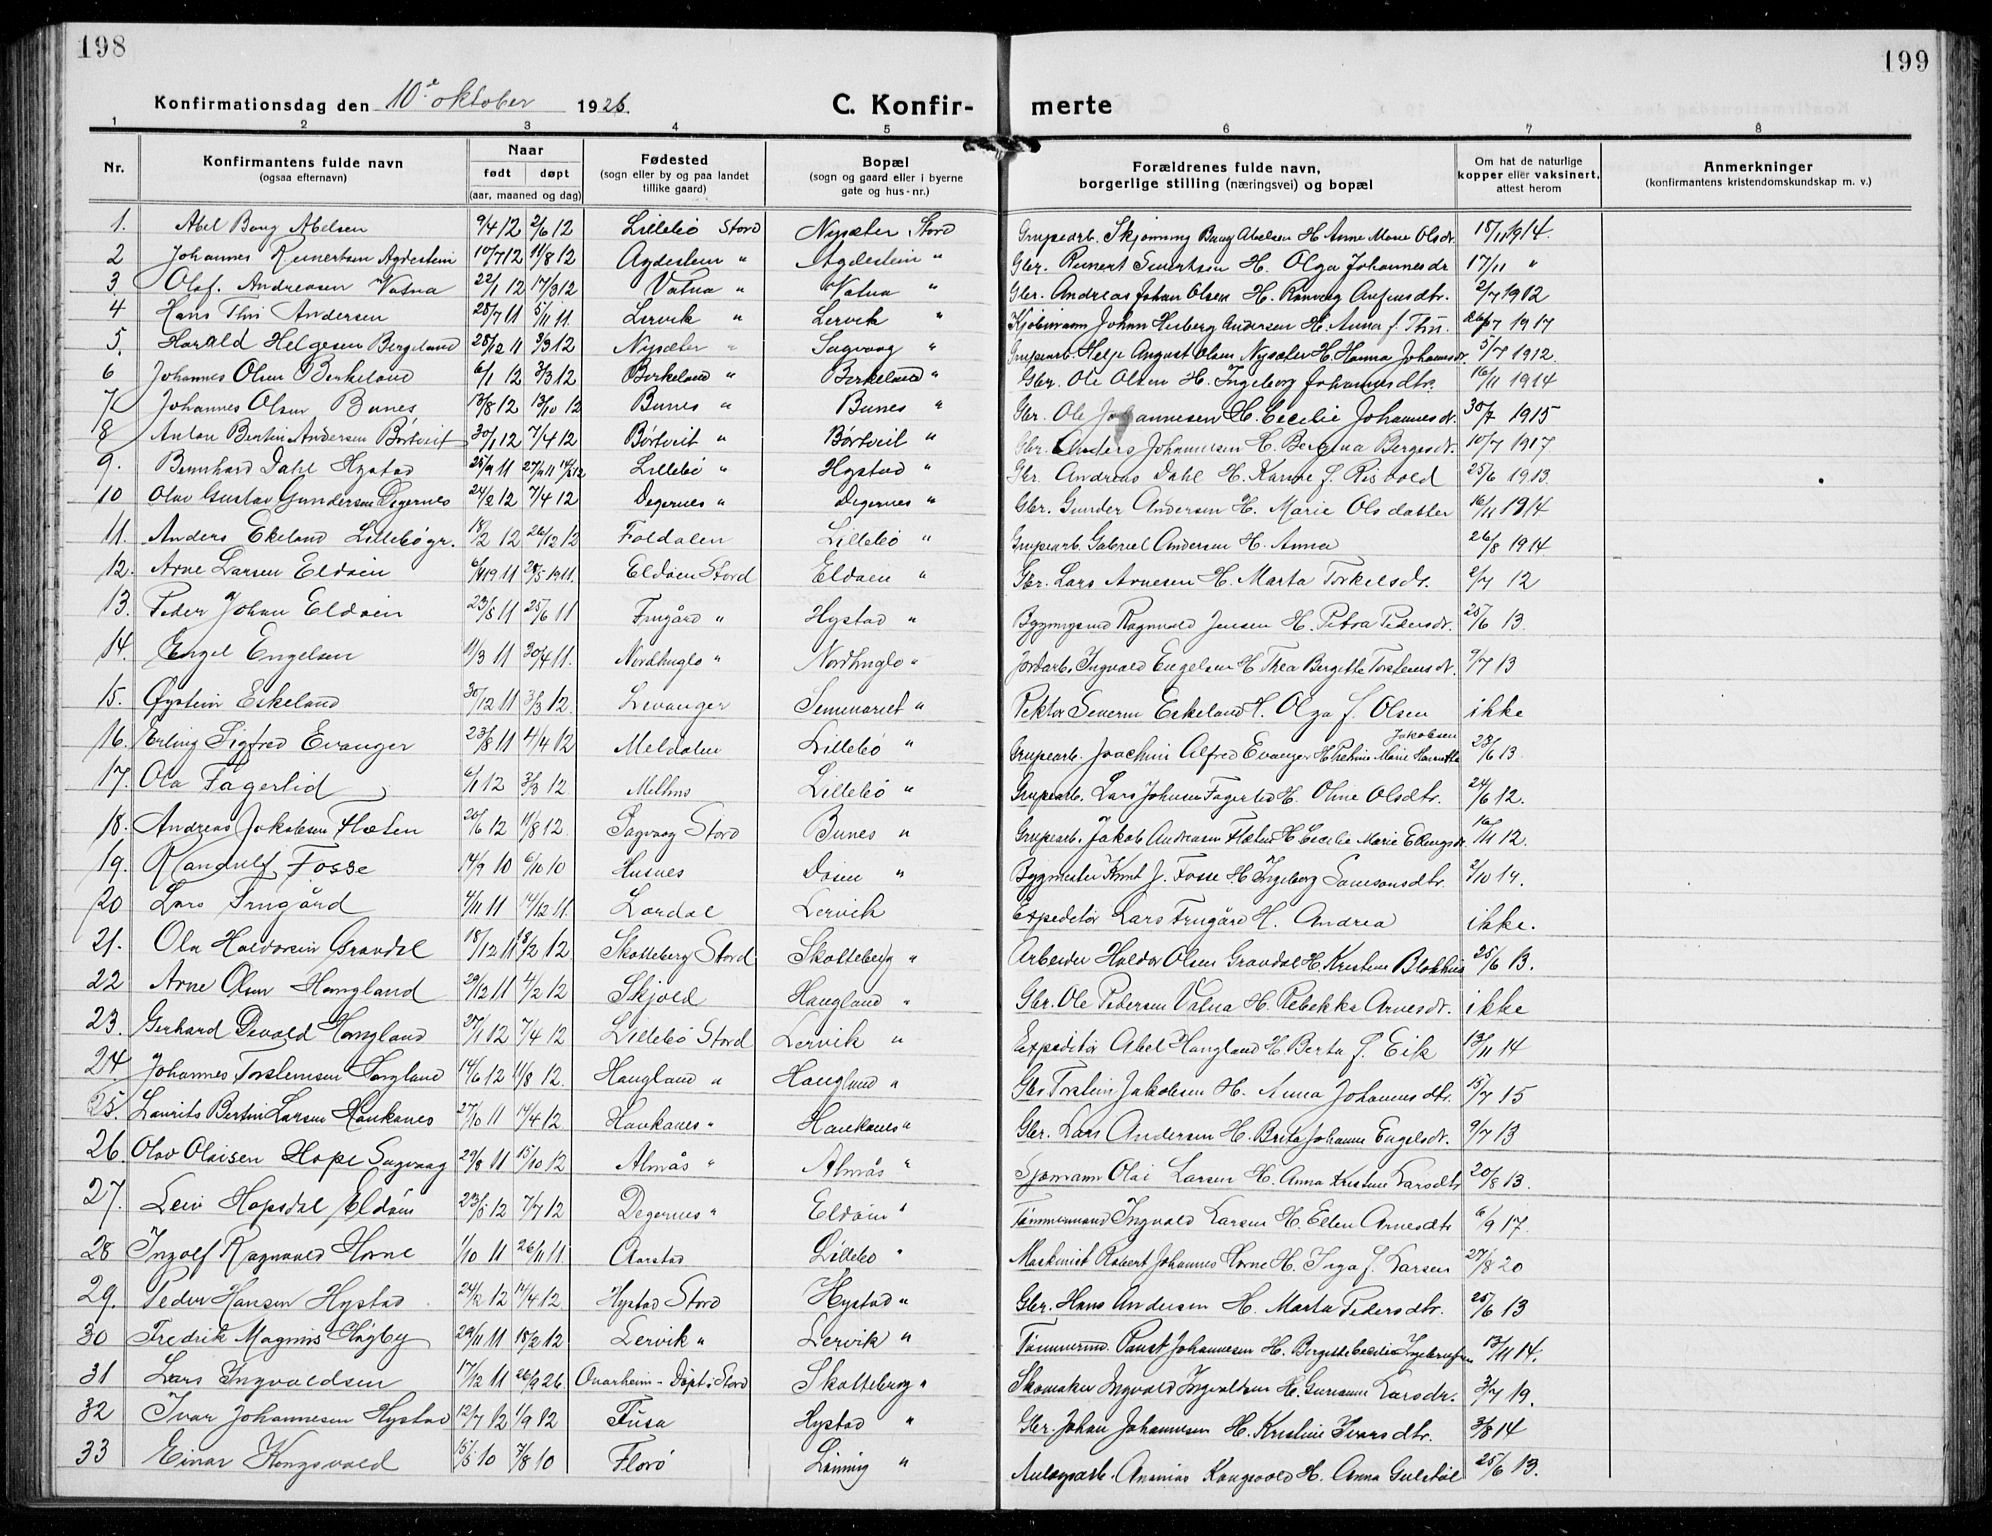 198
199
Konfirmationsdag den 10de oktober 1926.
C. Konfir- merte
1 2 3 4 5 6 7 8
Nr. Konfirmantens fulde navn (ogsaa efternavn) Naar født døpt (aar, maaned og dag) Fødested (sogn eller by og paa landet tillike gaard) Bopæl (sogn og gaard eller i byerne gate og hus-nr.) Forældrenes fulde navn, borgerlige stilling (næringsvei) og bopæl Om hat de naturlige kopper eller vaksinert, attest herom Anmerkninger (konfirmantens kristendomskundskap m. v.)
1. Abel Bang Abelsen 9/4 12 2/6 12 Lillebø Stord Nysæter Stord Grubearb. Skjønning Bang Abelsen H. Anne Marie Olsdr. 18/11 1914.
2 Johannes Reinertsen Agdestein 10/7 12 11/8 12 Agdestein " Agdestein " Gbr. Reinert Sivertsen H. Olga Johannesdr 17/11 "
3 Olaf Andreasen Vatna 22/1 12 17/3 12 Vatna " Vatna " Gbr. Andreas Johan Olsen H. Rannveig Anfinsdtr. 2/7 1912
4 Hans Thii Andersen 28/7 11 5/11 11. Lervik " Lervik " Kjøbmann Johan Herberg Andersen H. Anna f. Thii. 1917
5. Harald Helgesen Bergeland 28/12 11 3/3 12 Nysæter " Sagvaag " Grubearb. Helge August Olsen Nysæter H. Hanna Johannesdr. 5/7 1912.
6 Johannes Olsen Birkeland 6/1 12 3/3 12 Birkeland " Birkeland " Gbr. Ole Olsen H. Ingeborg Johannesdtr. 16/11 1914
7 Johannes Olsen Bunes 13/8 12 13/10 12 Bunes " Bunes " Gbr. Ole Johannesen H. Cecilie Johannesdr. 30/7 1915
8 Anton Bertin Andersen Børtveit 30/1 12 7/4 12 Børtveit " Børtveit " Gbr. Anders Johannesen H. Bergina Bergesdr. 10/7 1917
9. Bernhard Dahl Hystad 25/9 11 27/9 11 Lillebø " Hystad " Gbr. Andreas Dahl H. Karine f. Risvold 25/6 1913.
10 Olav Gustav Gundersen Degernes 24/2 12 7/4 12 Degernes " Degernes " Gbr. Gunder Andersen H. Marie Olsdatter 16/11 1914
11. Anders Ekeland Lillebø gr. 18/2 12 26/12 12 Foldalen Lillebø " Grubearb. Gabriel Andersen H. Anna 26/8 1914
12. Arne Larsen Eldøen 6/4 1911 28/5 1911. Eldøen Stord Eldøen " Gbr. Lars Arnesen H. Marta Torkelsdr. 2/7 12
13. Peder Johan Eldøen 23/8 11 25/6 11 Frugård " Hystad " Bygningsmd Ragnvald Jensen H. Petra Pedersdr. 25/6 13.
14. Engel Engelsen 11/3 11 30/4 11. Nordhuglo " Nordhuglo " Jordarb. Ingvald Engelsen H. Thea Bergitte Torstensdr. 9/7 13
15. Øystein Eskeland 30/12 11 3/3 12. Levanger Seminariet " Rektor Severin Eskeland H. Olga f. Olsen ikke
16. Erling Sigfred Evanger 23/8 11 4/4 12 Meldalen Lillebø " Grubearb. Joachim Alfred Evanger H. Petrine Marie Henrette Jakobsen 23/6 13.
17. Ola Fagerlid 6/1 12 3/3 12 Melhus Lillebø " Grubearb. Lars Johnsen Fagerlid H. Oline Olsdtr. 24/6 12.
18. Andreas Jakobsen Flæten 20/6 12 11/8 12. Sagvaag Stord Bunes " Grubearb. Jakob Andreasen Flæten H. Cecilie Marie Ellingsdr. 16/11 12.
19. Randulf Fosse 14/9 10 6/10 10 Husnes Døsen " Bygmester Knut J. Fosse H. Ingeborg Samsonsdtr. 2/10 14.
20 Lars Frugård 4/11 11 14/12 11. Lærdal Lervik Expeditør Lars Frugård H. Andrea ikke.
21. Ola Haldorsen Gravdal 18/12 11 18/2 12 Skotteberg Stord Skotteberg " Arbeider Haldor Olsen Gravdal H. Kristine Blokhus 25/6 13.
22 Arne Olsen Haugland 29/12 11 4/2 12 Skjold Haugland " Gbr. Ole Pedersen Vatna H. Rebekka Arnesdr. ikke
23. Gerhard Osvald Haugland 27/1 12 7/4 12 Lillebø Stord Lervik " Expeditør Abel Haugland H. Berta f. Eik 13/11 14
24 Johannes Torsteinsen Haugland 14/6 12 11/8 12. Haugland " Haugland " Gbr Torstein Jakobsen H. Anna Johannesdtr. 15/7 15
25. Laurits Bertin Larsen Haukanes 27/10 11 14/4 12. Haukanes " Haukanes " Gbr. Lars Andersen H. Brita Johanne Engelsdr. 9/7 13
26. Olav Olaisen Hope Sagvaag 29/8 11 15/10 12 Almås " Almås " Sjømann Olai Larsen H. Anna Kristine Larsdtr 20/8 13.
27. Leiv Hopsdal Eldøin 23/5 12 7/7 12 Degernes " Eldøin " Tømmermand Ingvald Larsen H. Ellen Arnesdtr 6/9 17.
28 Ingolf Ragnvald Horne 1/10 11 26/11 11. Aarstad Lillebø " Maskinist Robert Johannes Horne H. Inga f. Larsen 27/8 20
29. Peder Hansen Hystad 24/2 12 14/4 12. Hystad Stord Hystad " Gbr. Hans Andersen H. Marta Pedersdtr. 25/6 13
30 Fredrik Magnus Høgby 29/11 11 18/2 12. Lervik " Lervik " Tømmermd. Paust Johannesen H. Bergitte Cecilie Ingebrigtsen 13/11 14.
31 Lars Ingvaldsen 17/12 11 26/9 26. Ovarheim - Døpt i Stord Skotteberg " Skomaker Ingvald Ingvaldsen H. Gurianne Larsdr. 3/7 19.
32 Ivar Johannesen Hystad 12/7 12 1/9 12 Fusa Hystad " Gbr. Johan Johannesen H. Kristine Ivarsdtr. 3/8 14
33 Einar Kongsvold 15/5 10 7/8 10 Florø Lønning " Anlægsarb. Ananias Kongsvold H. Anna Gulstøl 25/6 13.